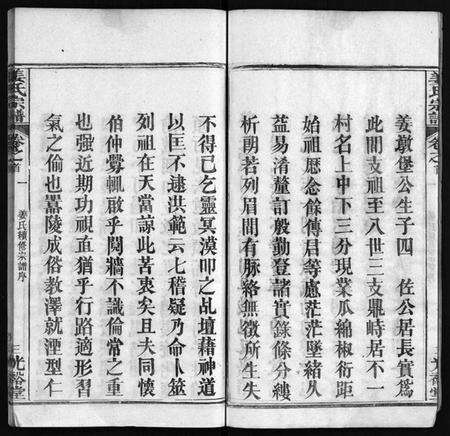 姜氏宗譜
卷之首
姜敦堡公生子四 佐公居長實為
此間支祖至八世三支鼎峙居不一
村名上中下三分現業瓜綿椒衍距
始祖歷念餘傳君等慮茫茫墜緒久
益易淆釐訂殷勤登諸實錄條分縷
析朗若列眉間有脈絡無徵所生失
光裕堂
不得已乞靈冥漠叩之乩壇藉神道
以匡不逮洪範云七稽疑乃命卜筮
列祖在天當諒此苦衷矣且夫同懷
伯仲釁輒啟乎鬩牆不識倫常之重
也强近期功視直猶乎行路適形習
氣之偷也囂陵成俗教澤就湮型仁
姜氏宗譜
卷之首
一
姜氏續修宗譜序
光裕堂